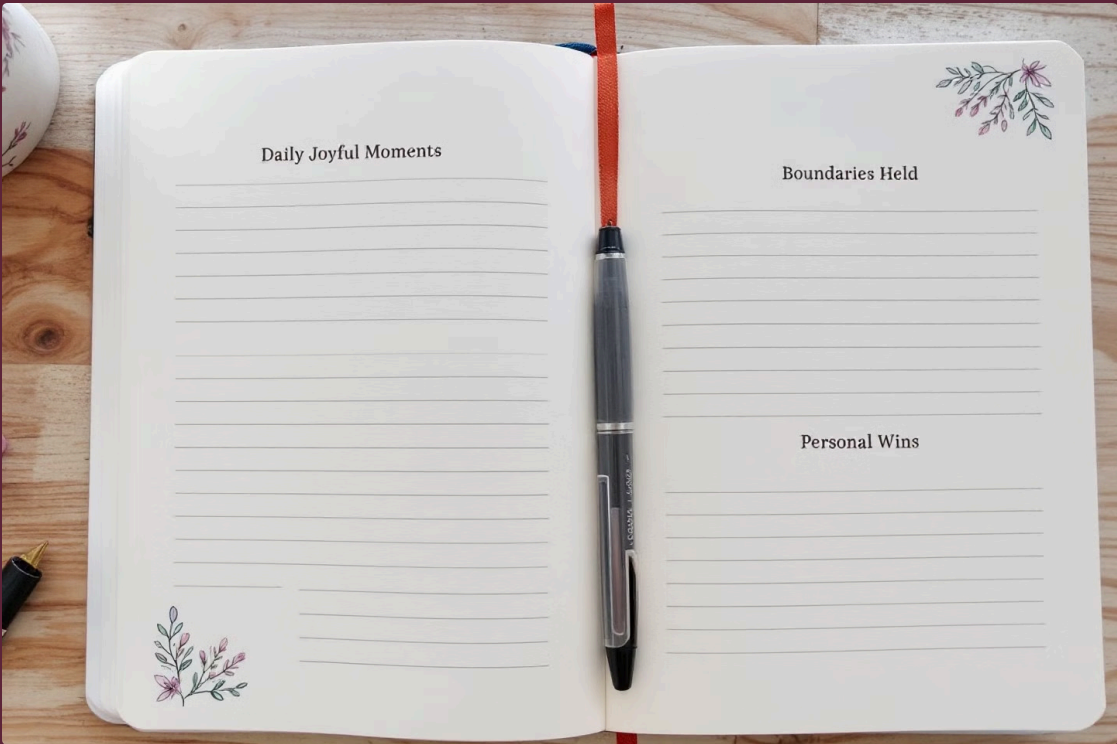 Daily Joyful Moments
Boundaries Held
Personal Wins